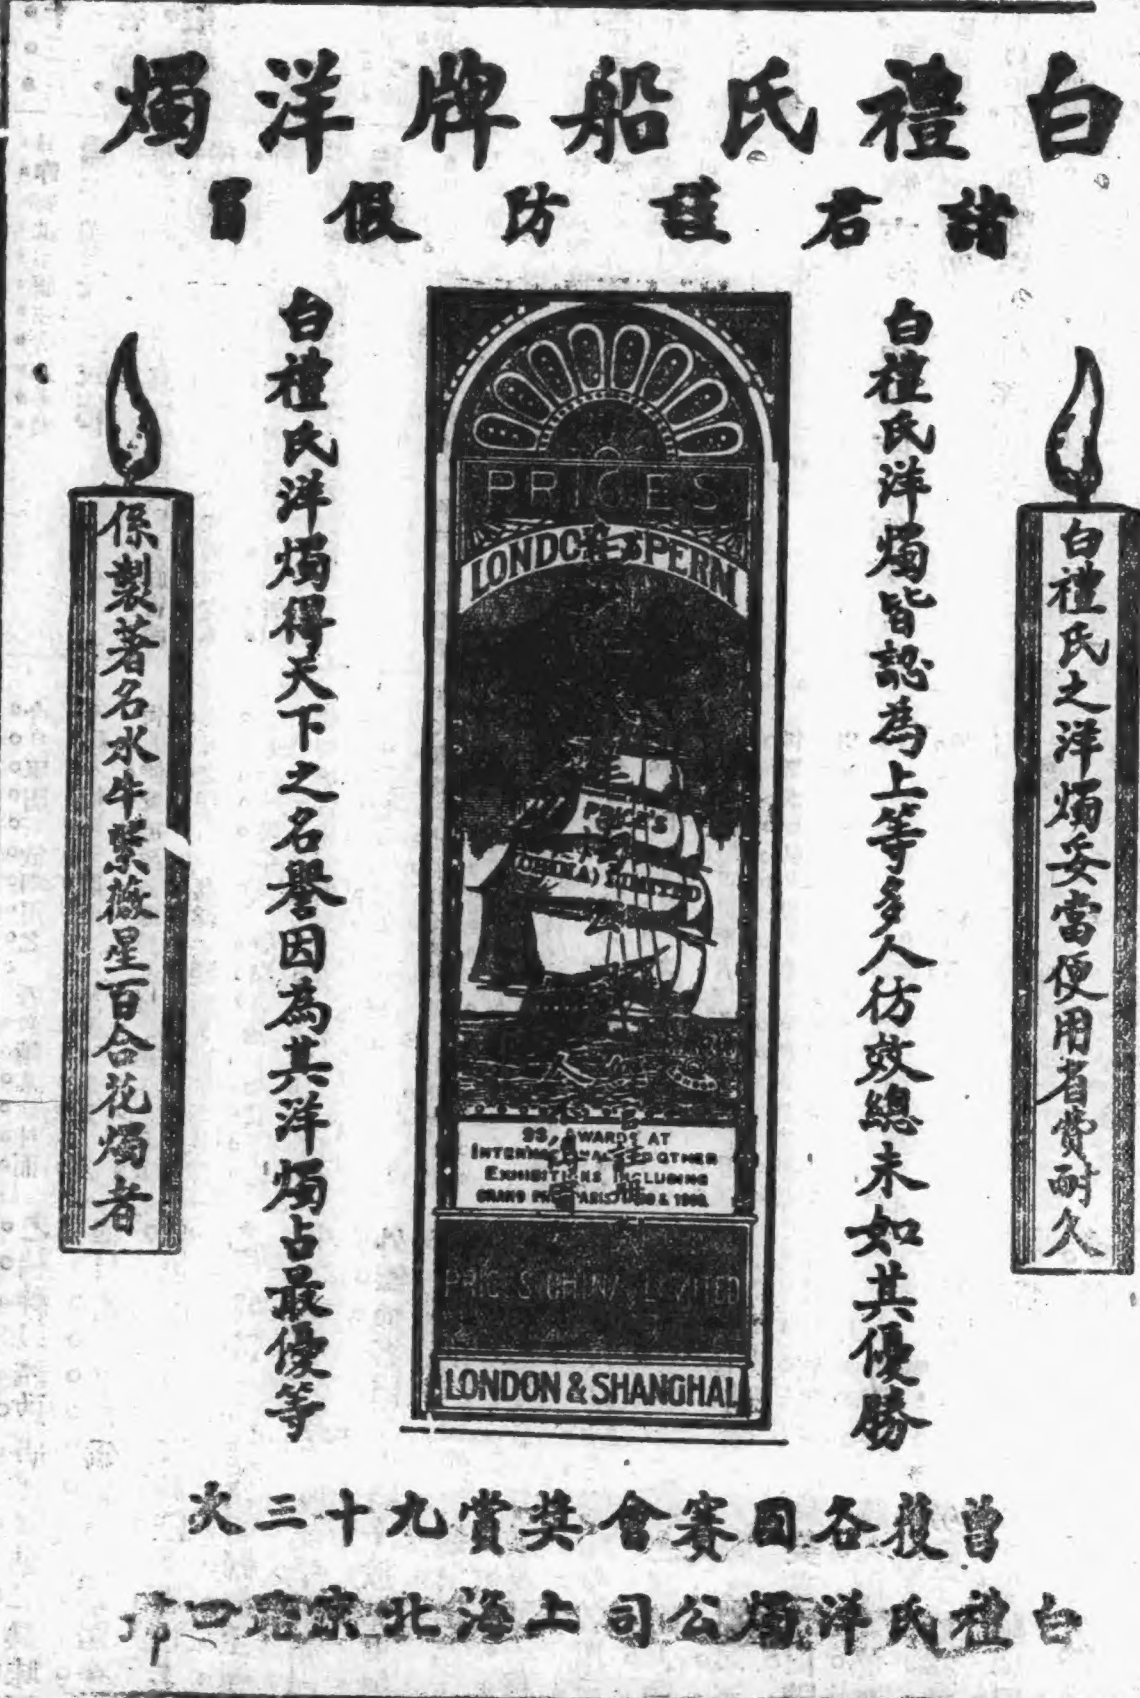 白禮氏船牌洋燭
諸君謹防假冒
白禮氏之洋燭妥當便用省費耐久
白禮氏洋燭皆認為上等多人彷效總未如其優勝
PRICES
LONDON SPERM
PRICE'S
(CHINA) LIMITED
93, AWARDS AT
INTERNATIONAL AND OTHER
EXHIBITIONS INCLUDING
PRICES CHINA LIMITED
LONDON & SHANGHAI
白禮氏洋燭得天下之名譽因為其洋燭占最優等
係製著名水牛紫薇星百合花燭者
曾獲各國賽會獎賞九十三次
白禮氏洋燭公司上海北京路四